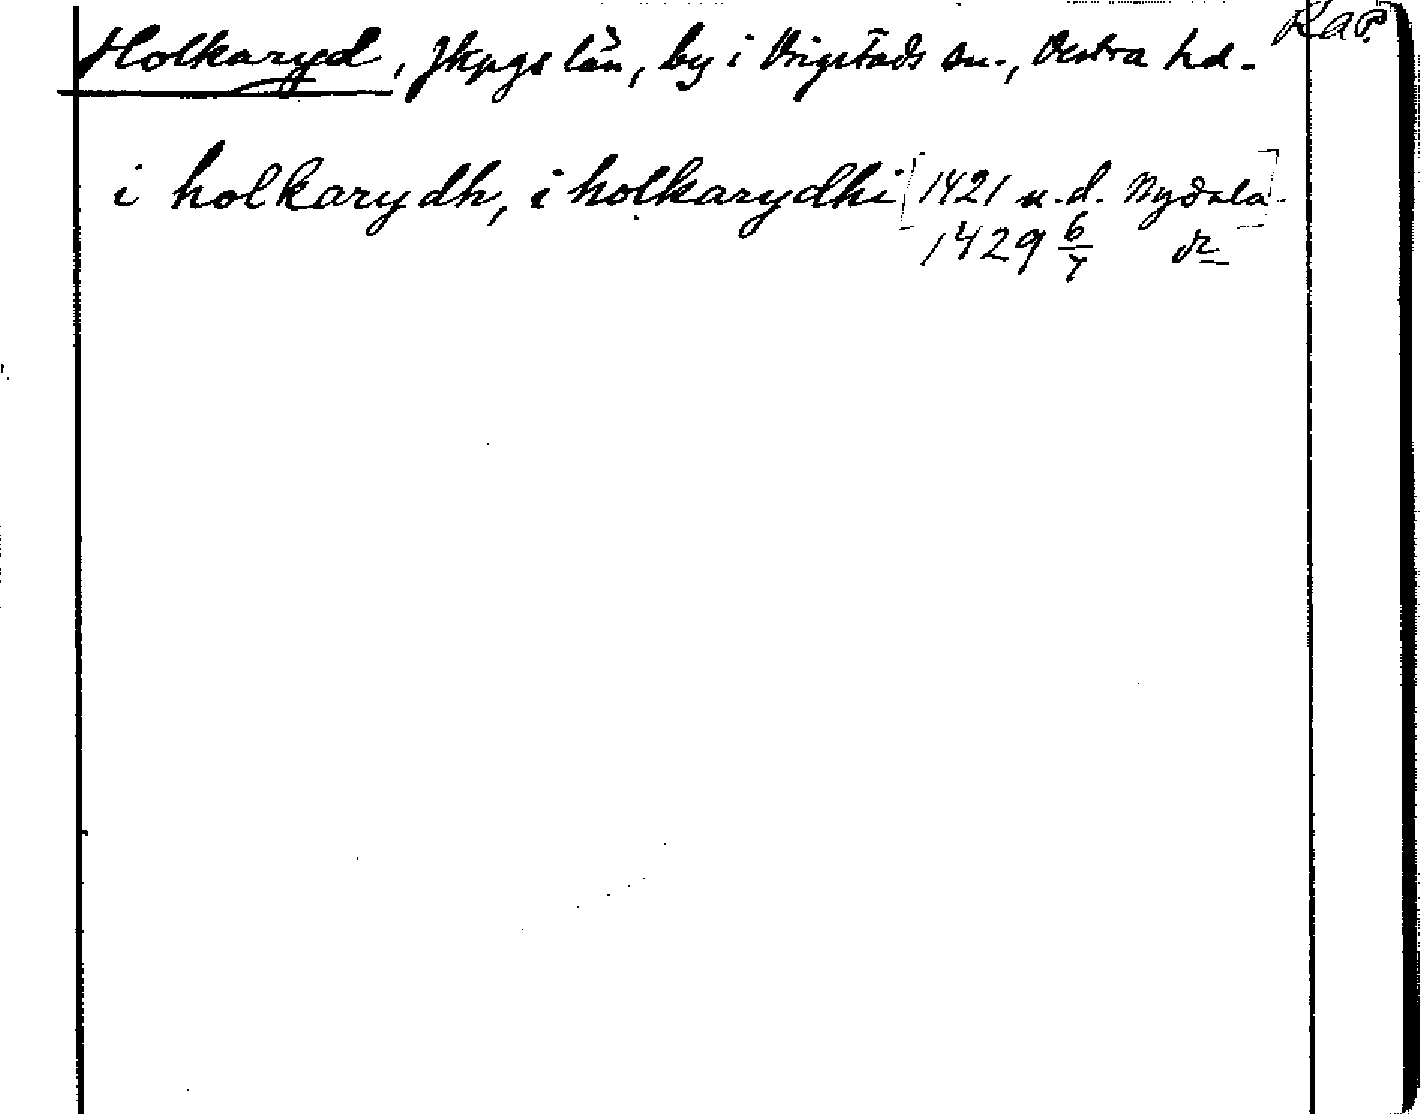 Holkaryd, Jkpgs län, by i Vrigstads sn., Västra hd. Rap.
i holkarydh, i holkarydhi [1421 u.d. Nydala]
1429 6/7